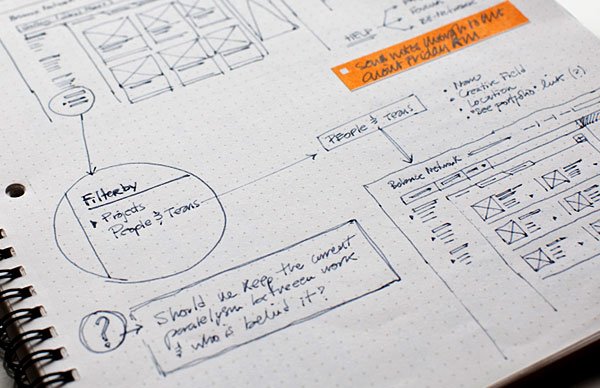 HELP
Send notes through to Matt
about Friday AM
PEOPLE & TEAMS
• Name
• Creative Field
• Location
• "see portfolio" link (?)
Balance Network
Filter by
▸ Projects
People & Teams
?
Should we keep the current
paralelysm between work
& who is behind it?